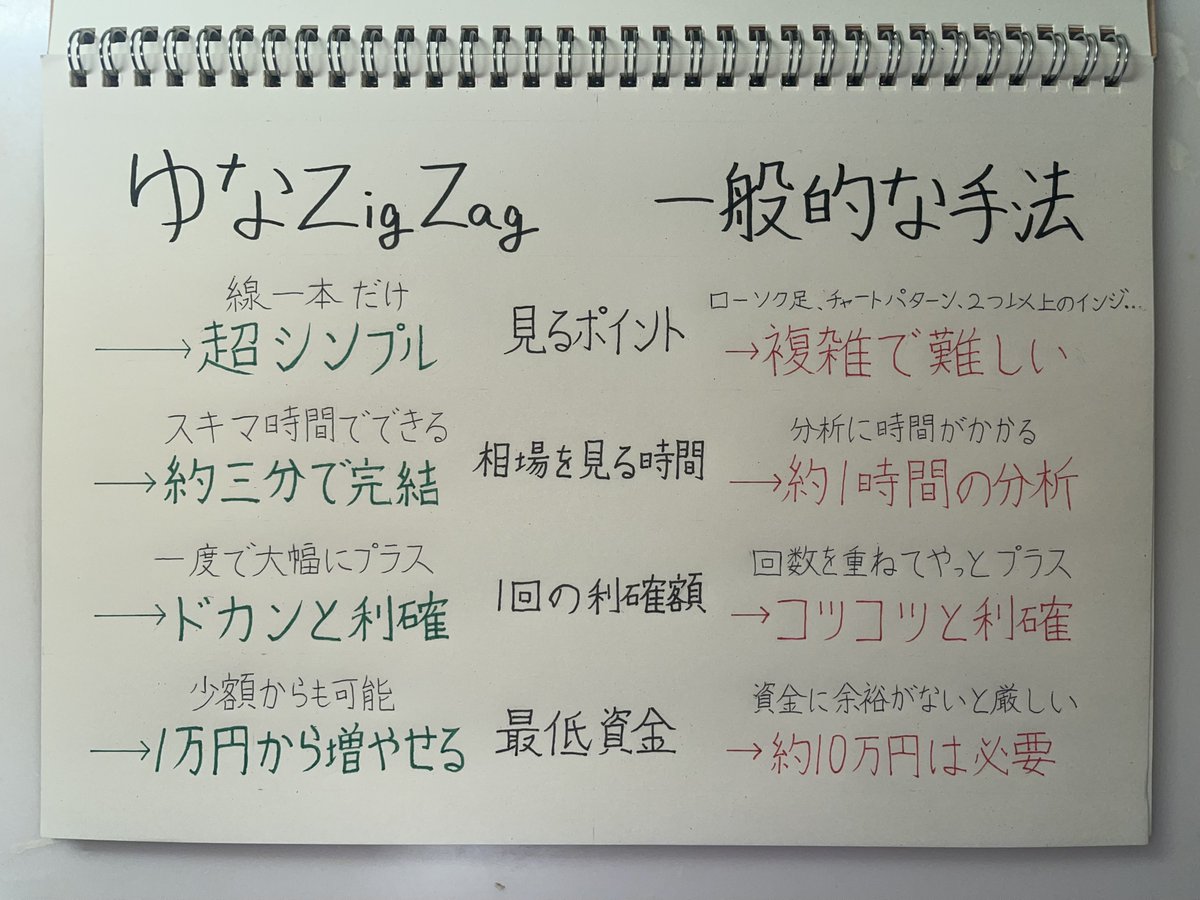 ゆなZigZag
一般的な手法
線一本だけ
→超シンプル
見るポイント
ローソク足、チャートパターン、2つ以上のインジ…
→複雑で難しい
スキマ時間でできる
→約三分で完結
相場を見る時間
分析に時間がかかる
→約1時間の分析
一度で大幅にプラス
→ドカンと利確
1回の利確額
回数を重ねてやっとプラス
→コツコツと利確
少額からも可能
→1万円から増やせる
最低資金
資金に余裕がないと厳しい
→約10万円は必要